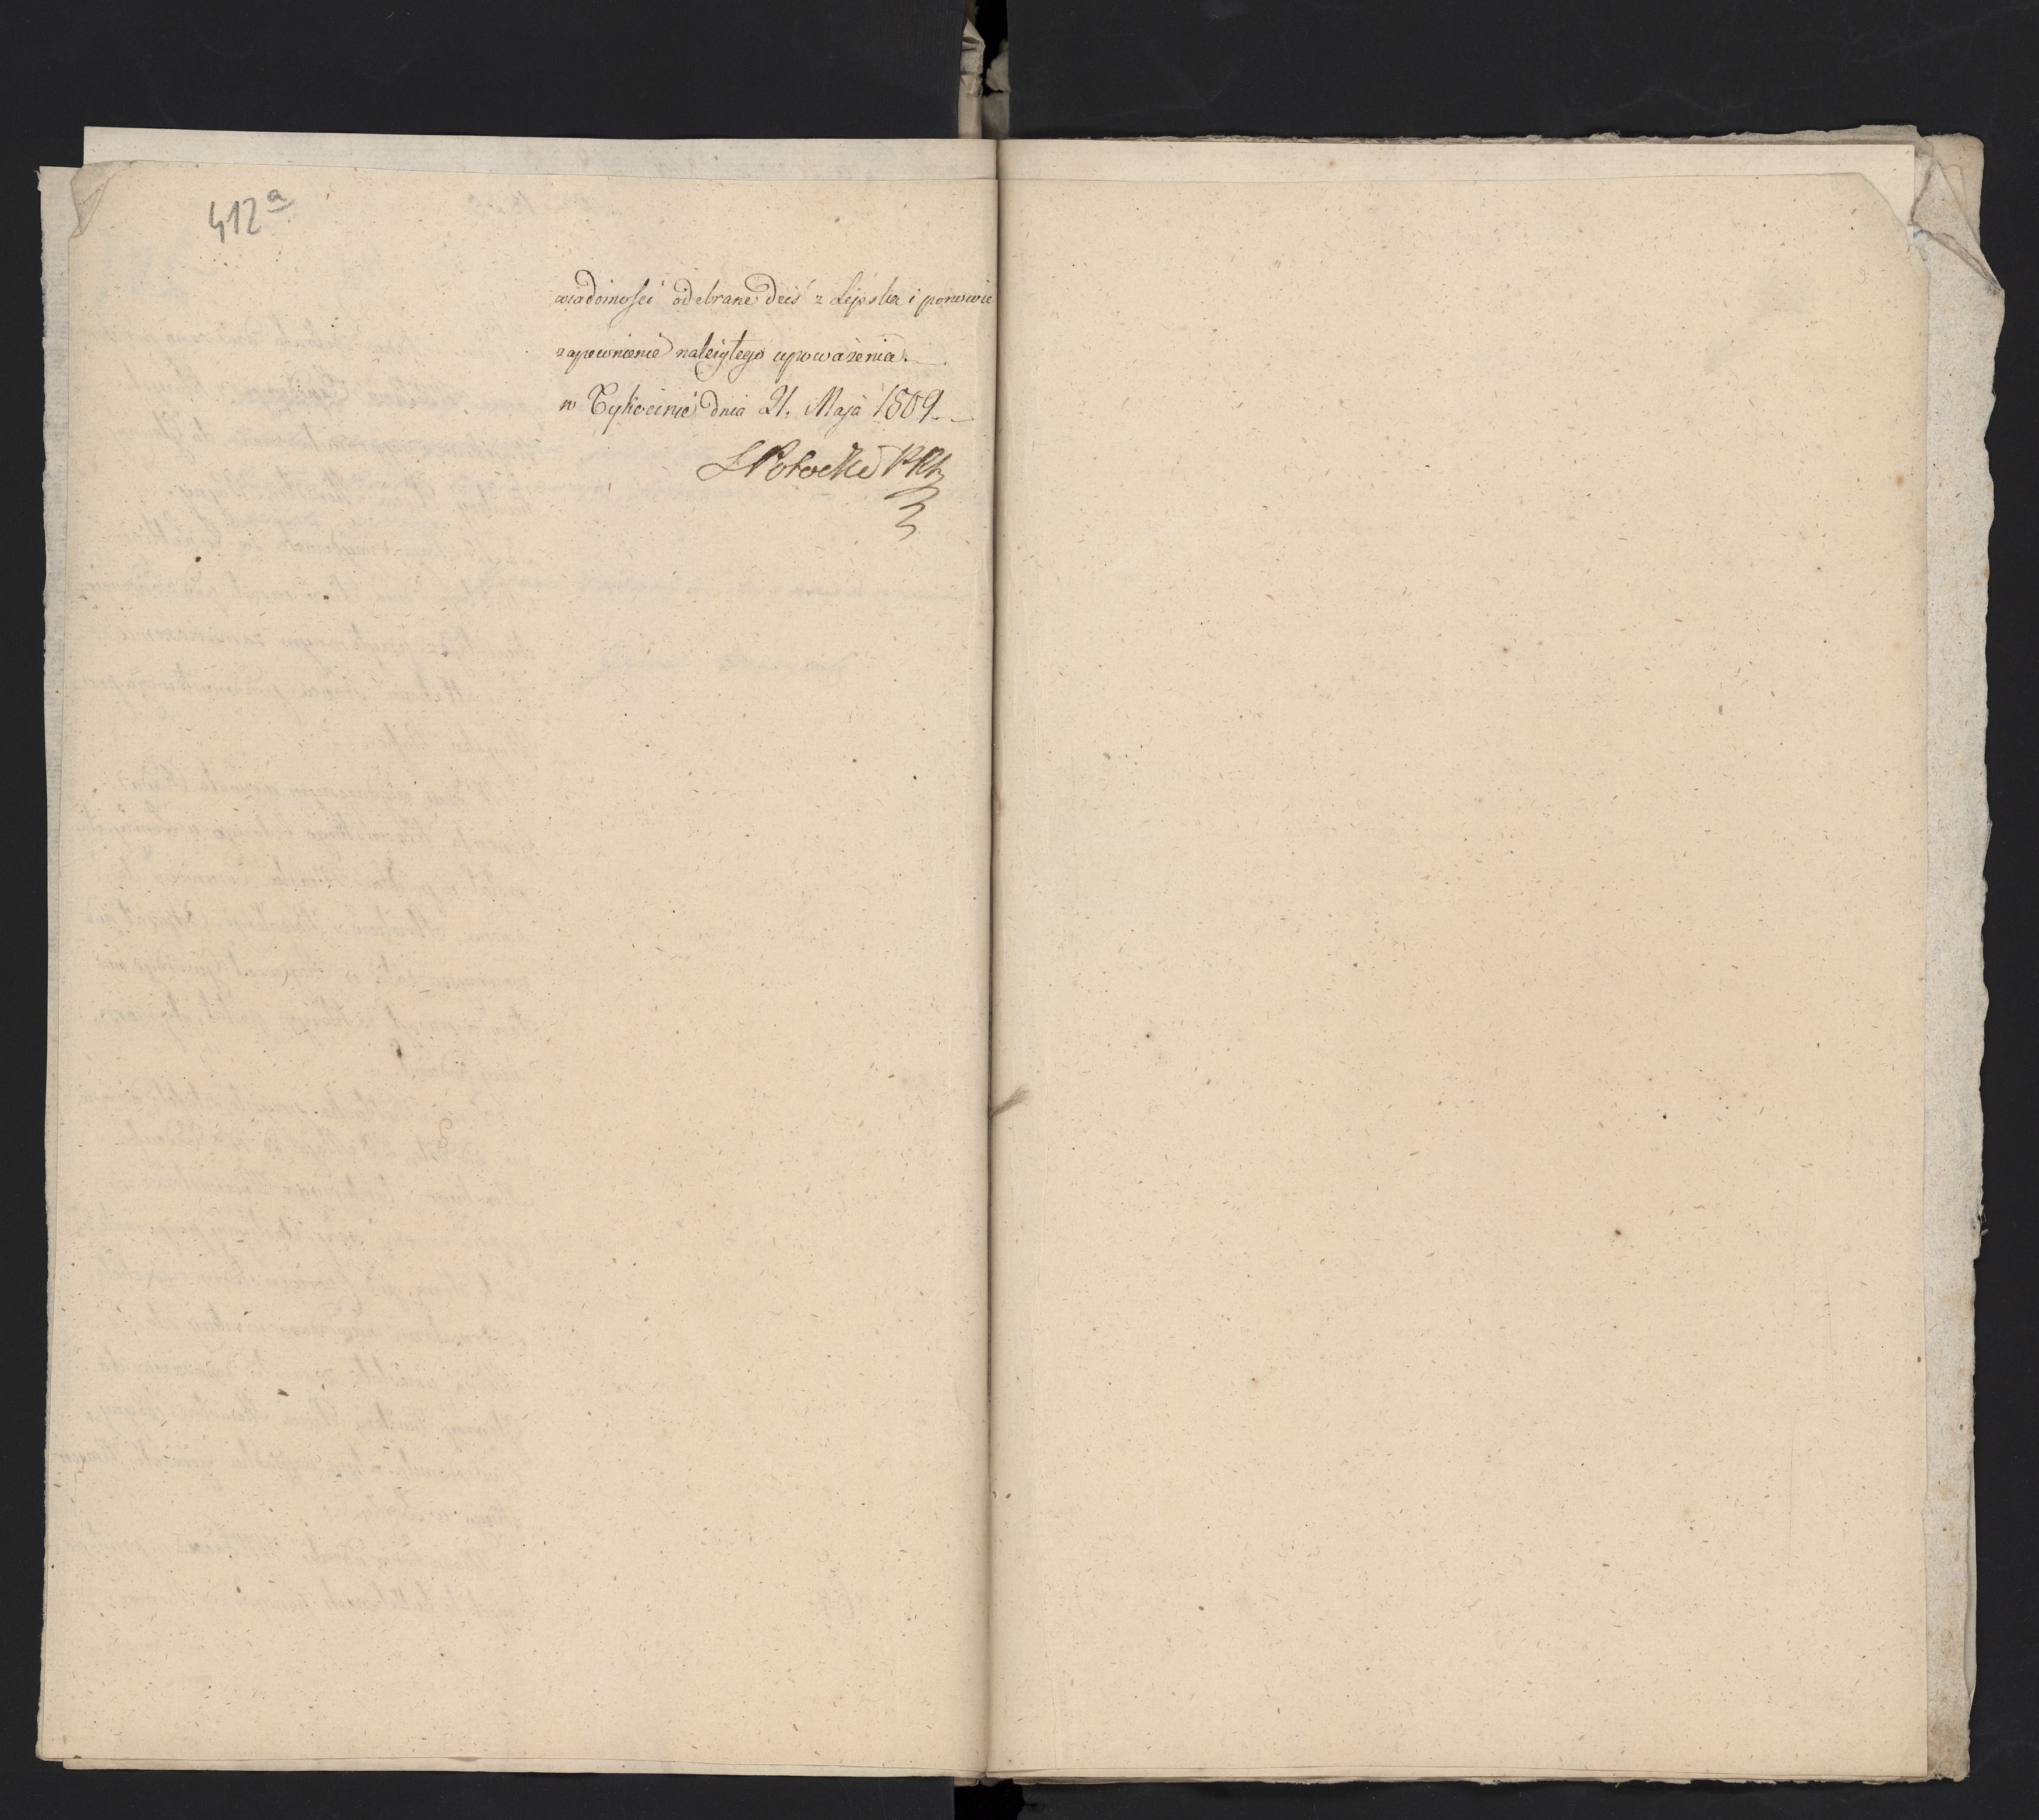 412a
wiadomości odebrane dziś z Lipska i ponowie
zapewnienie należytego upoważenia.
w Tykocinie dnia 21. Maja 1809.
Potocki